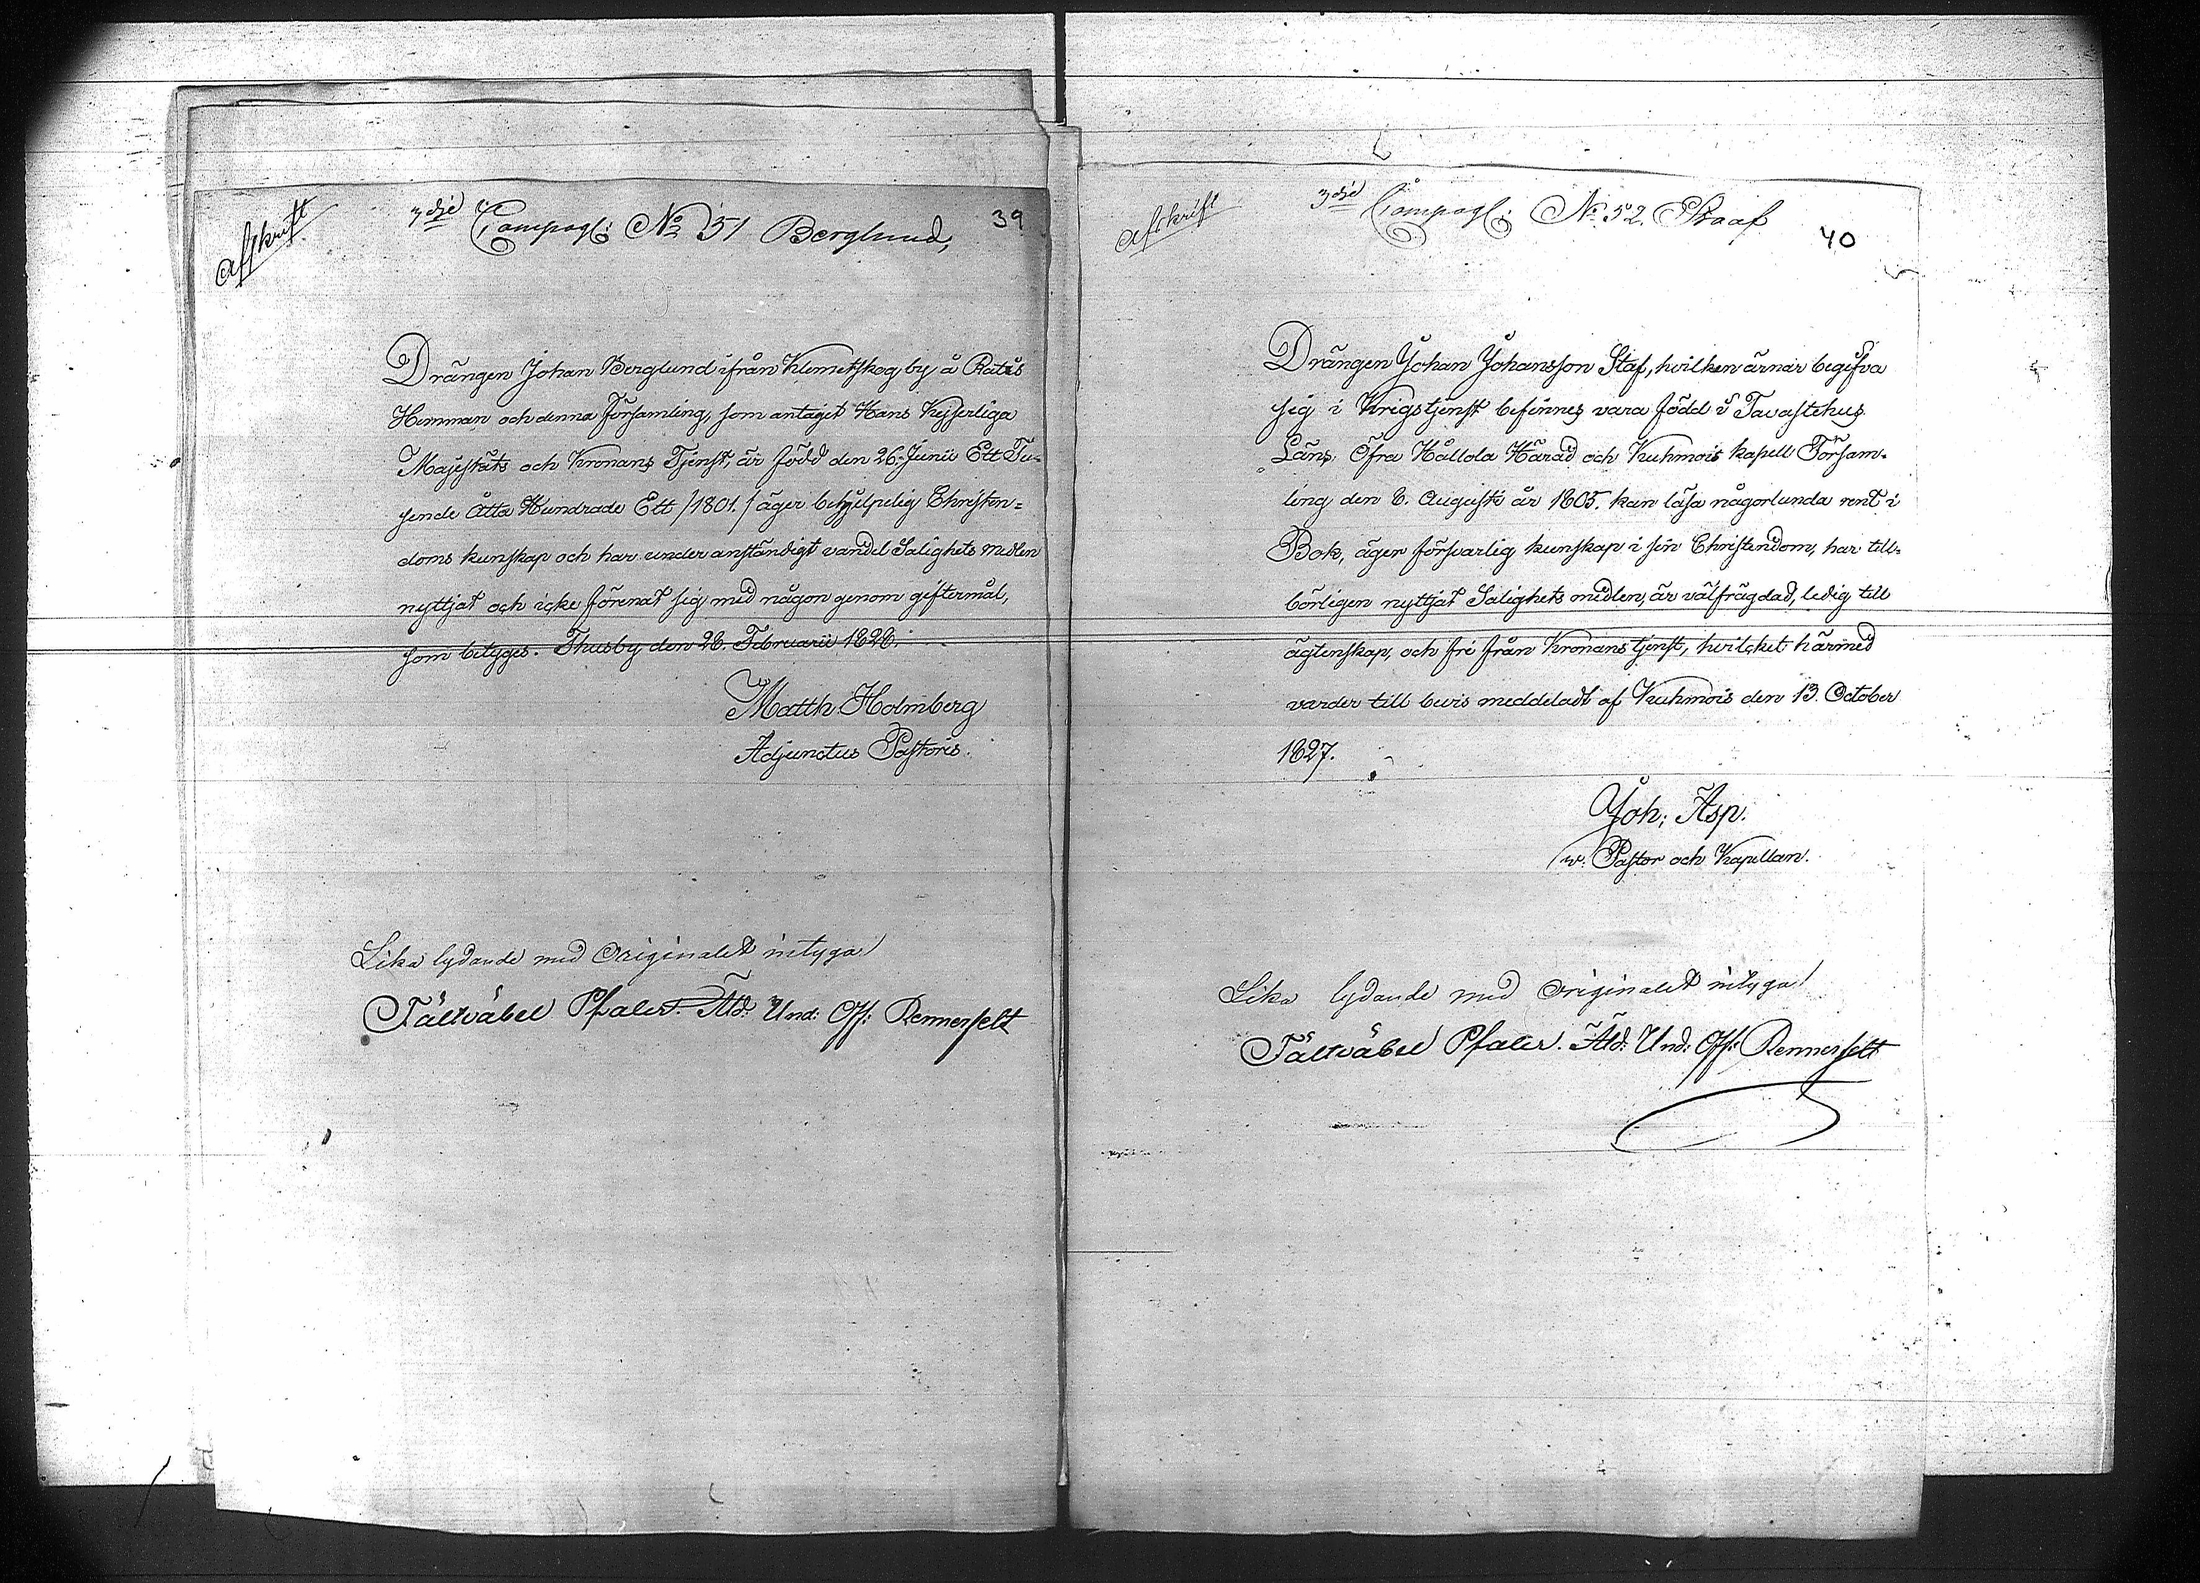 Afskrift
3dje Compagl: No 51 Berglund,
39
Drängen Johan Berglund ifrån Klemetskog by å Ratis
Hemman och denna Församling, som antagit Hans Kejserliga
Majestäts och Kronans Tjenst, är född den 26. Junii Ett Tu-
sende Åtta Hundrade Ett /1801./ äger behjelpelig Christen=
doms kunskap och har under anständigt vandel Salighets medlen
nyttjat och icke förenat sig med någon genom giftermål,
som betyges. Thusby den 28. Februarii 1828.
Matth Holmberg
Adjunctus Pastoris.
Lika lydande med Originalet intyga
Fältväbel Pfaler. Åld: Und: Off: Rennerfelt
Afskrift
3dje Compagl: No 52. Staaf
40
Drängen Johan Johansson Staf, hvilken ärnar begifva
sig i Krigstjenst befinnes vara född i Tavastehus
Läns, Öfra Hållola Härad och Kuhmois kapell Försam-
ling den 6. Augusti år 1805. kan läsa någorlunda rent i
Bok, äger försvarlig kunskap i sin Christendom, har till-
börligen nyttjat Salighets medlen, är välfrägdad, ledig till
ägtenskap, och fri från Kronans tjenst, hvilcket härmed
varder till bevis meddeladt af Kuhmois den 13. October
1827.
Joh: Asp.
v. Pastor och Kapellan.
Lika lydande med Originalet intyga
Fältväbel Pfaler. Åld: Und: Off: Rennerfelt